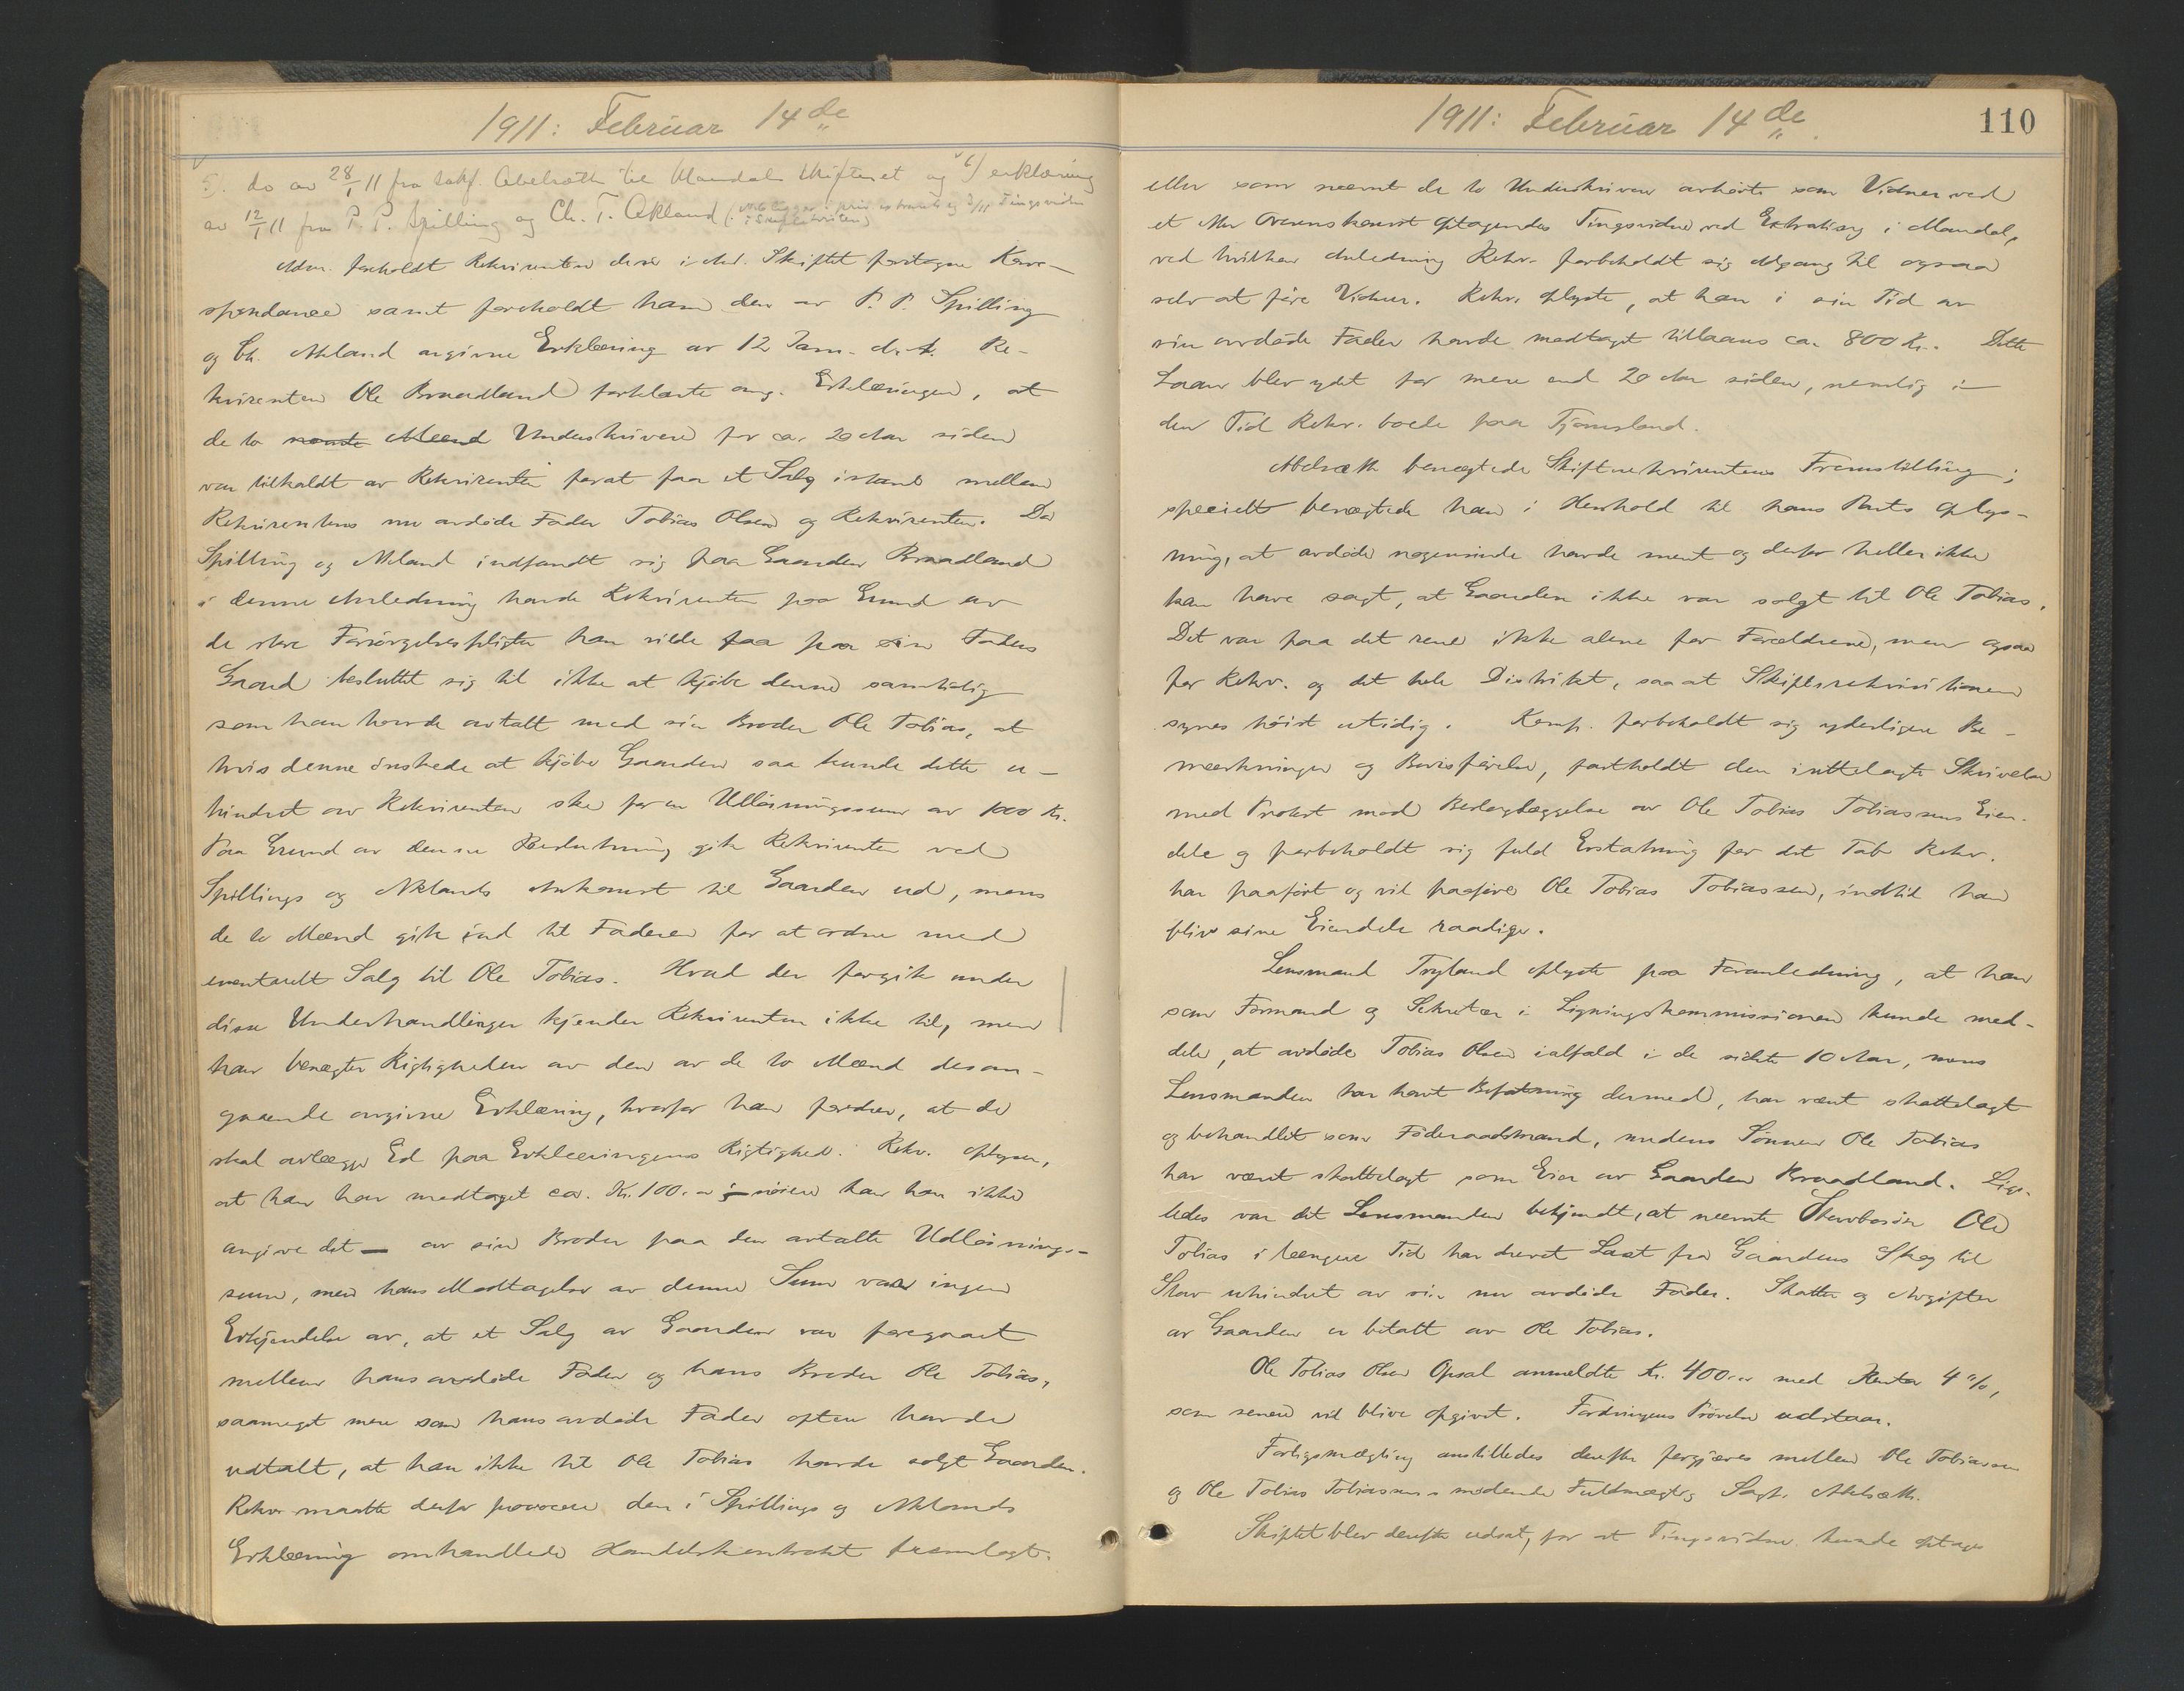 1911: Februar 14de
5). do av 28/1 11 fra sakf. Abelsæth til Mandals skifteret og 6) erklæring
av 12/1 11 fra P. P. Spilling og Ch. T. Akland (: No 6 ligger i priv. extraretssag 3/11 Tingsvidne
: Skifteretten)
Adm. foreholdt Rekvirenten den i Anl. Skiftet foretagne Korre-
spondance samt foreholdt ham den av P. P. Spilling
og Ch. Akland avgivne Erklæring av 12 Jan. d. A. Re-
kvirenten Ole Braadland forklarte ang. Erklæringen, at
de to nævnte Mænd Underskrivere for ca. 20 Aar siden
var tilkaldt av Rekvirenten forat faa et Salg istand mellem
Rekvirentens nu avdøde Fader Tobias Olsen og Rekvirenten. Da
Spilling og Akland indfandt sig paa Gaarden Braadland
i denne Anledning havde Rekvirenten paa Grund av
de store Forsørgelsespligter han vilde faa paa sin Faders
Gaard besluttet sig til ikke at kjøbe denne samtidig
som han havde avtalt med sin Broder Ole Tobias, at
hvis denne ønskede at kjøbe Gaarden saa kunde dette u-
hindret av Rekvirenten ske for en Utløsningssum av 1000 Kr.
Paa Grund av denne Beslutning gik Rekvirenten ved
Spillings og Aklands Ankomst til Gaarden ud, mens
de to Mænd gik ind til Faderen for at ordne med
eventuelt Salg til Ole Tobias. Hvad der foregik under
disse Underhandlinger kjender Rekvirenten ikke til, men
han benegter Rigtigheden av den av de to Mænd desan-
gaaende avgivne Erklæring, hvorfor han fordrer, at de
skal avlægge Ed paa Erklæringens Rigtighed. Rekv. oplyser,
at han har modtaget ca. Kr. 100.00 – nøiere kan han ikke
angive det – av sin Broder paa den avtalte Udløsnings-
sum, men hans Modtagelse av denne Sum var ingen
Erkjendelse av, at et Salg av Gaarden var foregaaet
mellem hans avdøde Fader og hans Broder Ole Tobias,
saameget mere som hans avdøde Fader ofte havde
udtalt, at han ikke til Ole Tobias havde solgt Gaarden.
Rekv. maatte derfor provocere den i Spillings og Aklands
Erklæring omhandlede Handelskontrakt fremlagt.
1911: Februar 14de.
110
eller som nævnt de to Underskrivere avhørte som Vidner ved
et efter Overenskomst optagendes Tingsvidne ved Extrating i Mandal,
ved hvilken Anledning Rekv. forbeholdt sig Adgang til ogsaa
selv at føre Vidner. Rekv. oplyste, at han i sin Tid av
sin avdøde Fader havde modtaget tillaans ca. 800 Kr. Dette
Laan blev ydet for mere end 20 Aar siden, nemlig i
den Tid Rekv. boede paa Tjomsland.
Abelsæth benegtede Skifterekvirentens Fremstilling;
specielt benegtede han i Henhold til hans Parts Oplys-
ning, at avdøde nogensinde havde ment og derfor heller ikke
kan have sagt, at Gaarden ikke var solgt til Ole Tobias.
Det var paa det rene ikke alene for Forældrene, men ogsaa
for Rekv. og det hele Distrikt, saaat Skifterekvisitionen
synes høist utidig. Komp. forbeholdt sig yderligere Be-
mærkninger og Bevisførelse, fastholdt den indtelagte Skrivelse
med Protest mod Beslaglæggelse av Ole Tobias Tobiassens Eien-
dele og forbeholdt sig fuld Erstatning for det Tab Rekv.
har paaført og vil paaføre Ole Tobias Tobiassen, indtil han
bliver sine Eiendele raadige.
Lensmand Tryland oplyste paa Foranledning, at han
som Formand og Sekretær i Ligningskommissionen kunde med-
dele, at avdøde Tobias Olsen ialfald i de sidste 10 Aar, mens
Lensmanden har havt Befatning dermed, har været skattelagt
og behandlet som Føderaadsmand, medens Sønnen Ole Tobias
har været skattelagt som Eier av Gaarden Braadland. Lige-
ledes var det Lensmanden bekjendt, at nævnte Ole
Tobias i længere Tid har drevet Last fra Gaardens Skog til
uhindret av sin nu avdøde Fader. Skatter og Avgifter
av Gaarden er betalt av Ole Tobias.
Ole Tobias Olsen Opsal anmeldte Kr. 400.00 med Renter 4 %,
som senere vil blive opgivet. Fordringens Prøvelse udstaar.
Forligsmægling anstilledes derefter forgjæves mellem Ole Tobiassen
og Ole Tobias Tobiassens mødende Fuldmægtig Sagf. Abelsæth.
Skiftet blev derefter udsat, for at Tingsvidne kunde optages